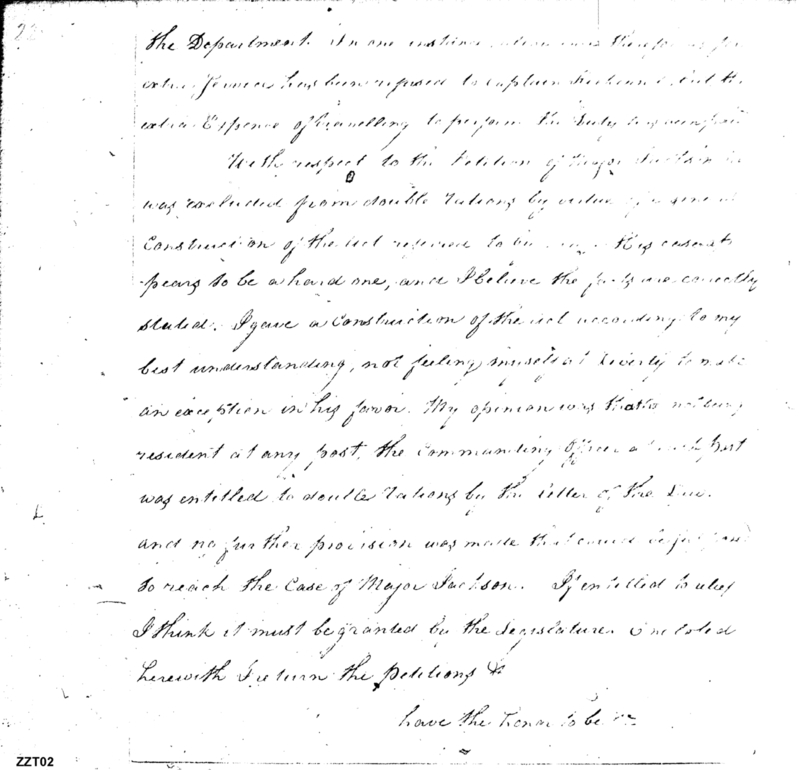 22
the Department. In one instance
extra Services has been refused to Captain but the
extra Expence of travelling to perform the Duty
With respect to the Petition of Major Jackson he
was excluded from double rations by virtue of a general
Construction of the act referred to his case ap
pears to be a hard one, and I believe the facts are correctly
stated. I gave a Construction of the act according to my
best understanding, not feeling myself at Liberty to make
an exception in his favor. My opinion was that not being
resident at any post, the Commanding Officer at each post
was entitled to double rations by the letter of the Law.
and no further provision was made that could
to reach the Case of Major Jackson. If entitled to relief
I think it must be granted by the Legislature. Inclosed
herewith I return the Petitions &
have the Honor to be &c
ZZT02